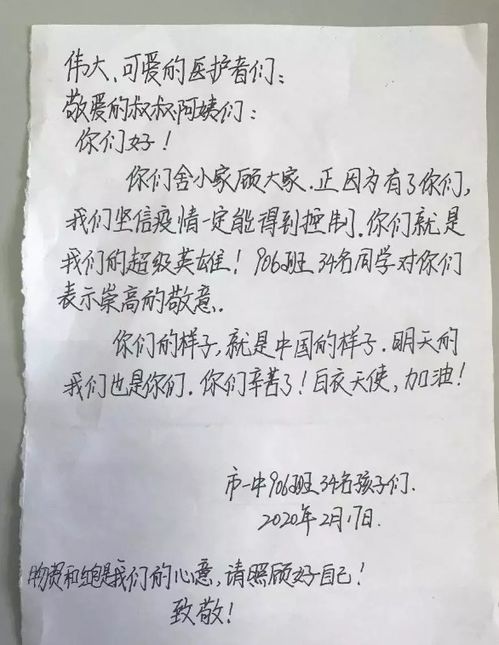 伟大、可爱的医护者们：
敬爱的叔叔阿姨们：
你们好！
你们舍小家顾大家.正因为有了你们，
我们坚信疫情一定能得到控制.你们就是
我们的超级英雄！906班34名同学对你们
表示崇高的敬意.
你们的样子，就是中国的样子.明天的
我们也是你们.你们辛苦了！白衣天使，加油！
市一中906班34名孩子们.
2020年2月17日.
物资和是我们的心意，请照顾好自己！
致敬！